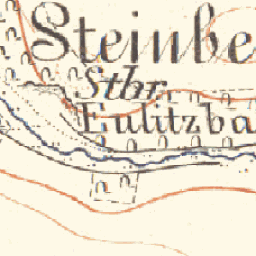 Steinbe
Sthr.
Eulitzba